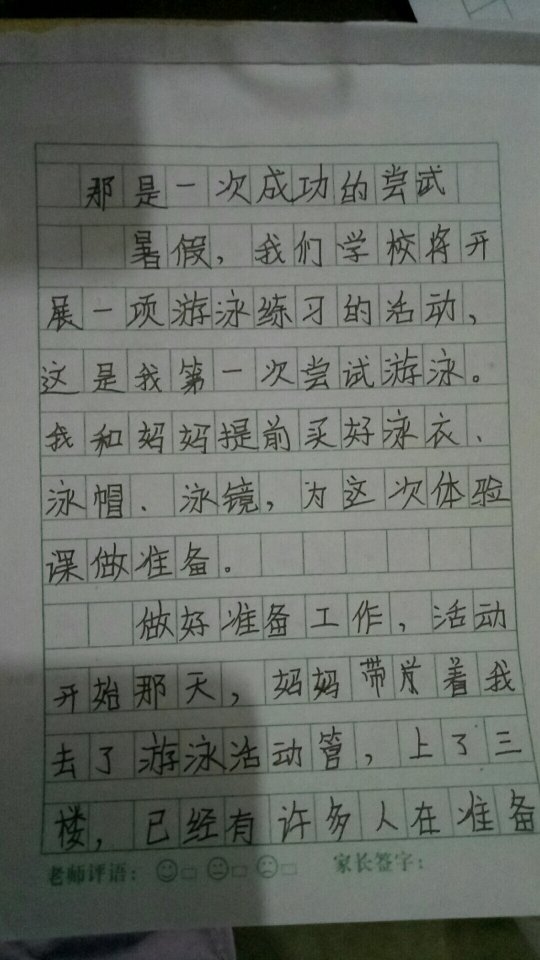 那是一次成功的尝试
暑假，我们学校将开
展一项游泳练习的活动，
这是我第一次尝试游泳。
我和妈妈提前买好泳衣、
泳帽、泳镜，为这次体验
课做准备。
做好准备工作，活动
开始那天，妈妈带着我
去了游泳活动管，上了三
楼，已经有许多人在准备
老师评语： 家长签字：